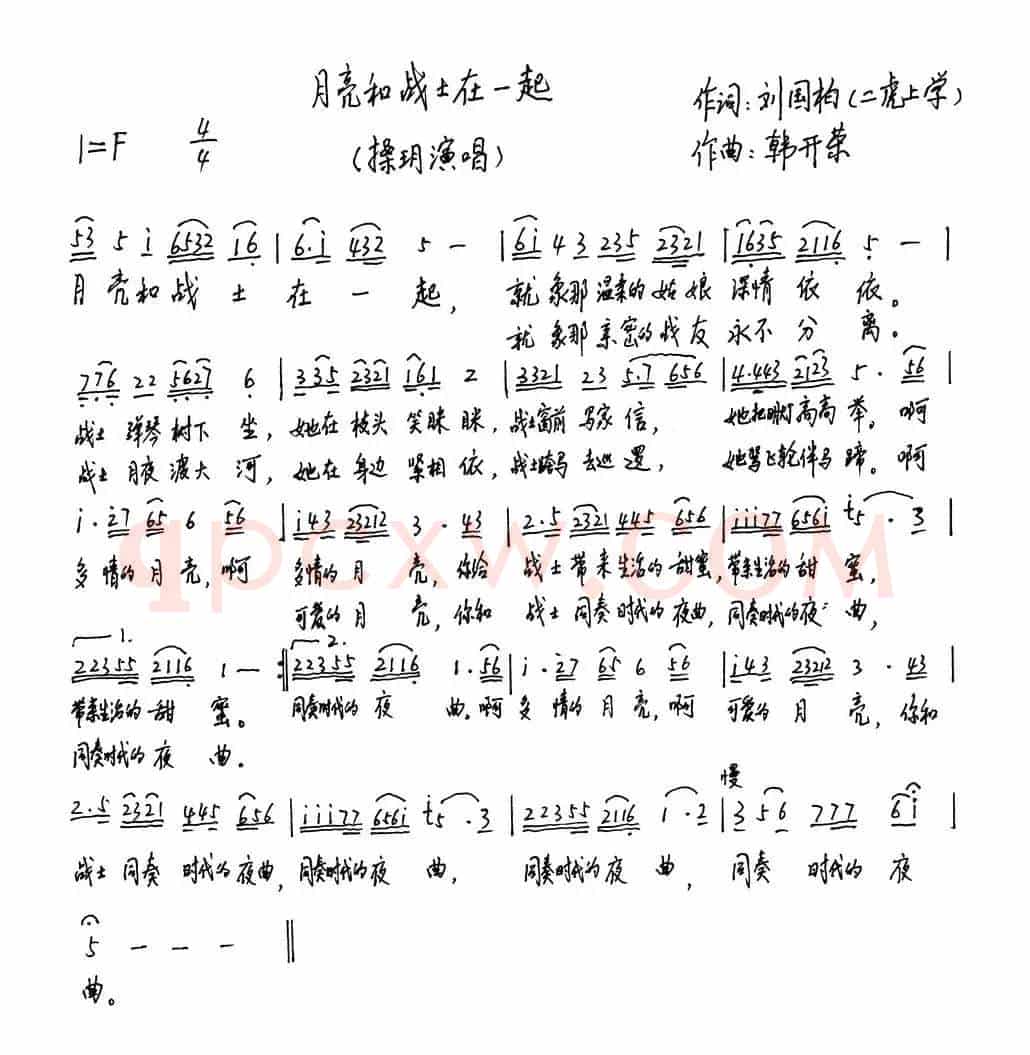 月亮和战士在一起
作词：刘国柏（二虎上学）
1=F 4/4
（操玥演唱）
作曲：韩开荣
53 5 i 6532 16 | 6·i 432 5 — | 6i 43 235 2321 | 1635 2116 5 — |
月亮和战士在一起，就象那温柔的姑娘深情依依。
就象那亲密的战友永不分离。
776 22 5627 6 | 335 2321 161 2 | 3321 23 5·7 656 | 4·443 2123 5· 56 |
战士弹琴树下坐，她在枝头笑眯眯，战士窗前写家信，她把明灯高高举。啊
战士月夜渡大河，她在身边紧相依，战士跨马去巡逻，她驾飞轮伴马蹄。啊
i·27 65 6 56 | i43 23212 3·43 | 2·5 2321 445 656 | iii77 656i i5·3 |
多情的月亮，啊多情的月亮，你给战士带来生活的甜蜜，带来生活的甜蜜，
可爱的月亮，你和战士同奏时代的夜曲，同奏时代的夜曲，
1. 2.
22355 2116 1 — :‖ 22355 2116 1·56 | i·27 65 6 56 | i43 23212 3·43 |
带来生活的甜蜜。同奏时代的夜曲。啊多情的月亮，啊可爱的月亮，你和
同奏时代的夜曲。
慢
2·5 2321 445 656 | iii77 656i i5·3 | 22355 2116 1·2 | 3 56 777 6i |
战士同奏时代的夜曲，同奏时代的夜曲，同奏时代的夜曲，同奏时代的夜
5 — — — ‖
曲。
qpcxw.com